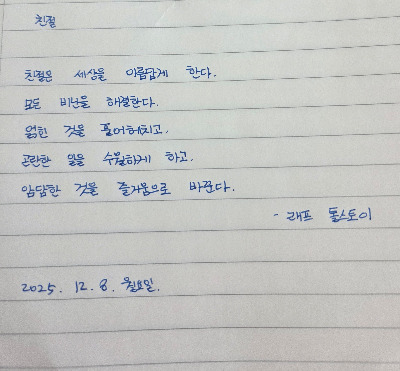 친절
친절은 세상을 아름답게 한다.
모든 비난을 해결한다.
얽힌 것을 풀어헤치고.
곤란한 일을 수월하게 하고.
암담한 것을 즐거움으로 바꾼다.
- 레프 톨스토이
2025. 12. 8. 월요일.